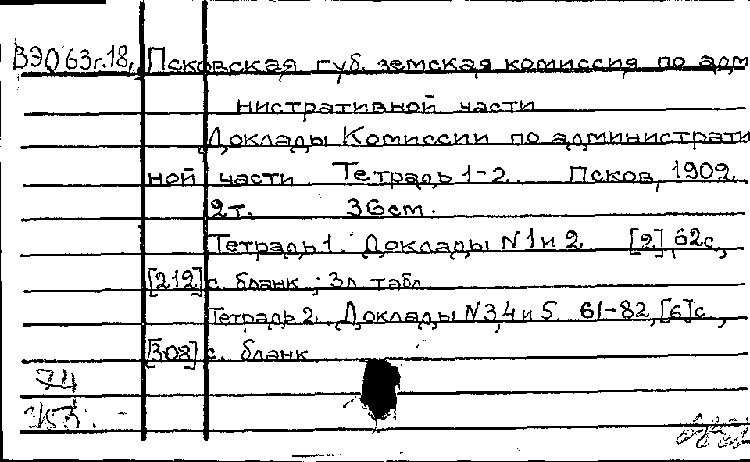 ВЭО 63г.18, Псковская губ. земская комиссия по адм
нистративной части
Доклады Комиссии по администрати
ной части Тетрадь 1-2. Псков, 1902.
2т. 36см.
Тетрадь 1. Доклады N 1 и 2. [2], 62с.,
[212] с. бланк.; 3л. табл.
Тетрадь 2. Доклады N 3,4 и 5 61-82, [6] с.,
[308] с. бланк.
74